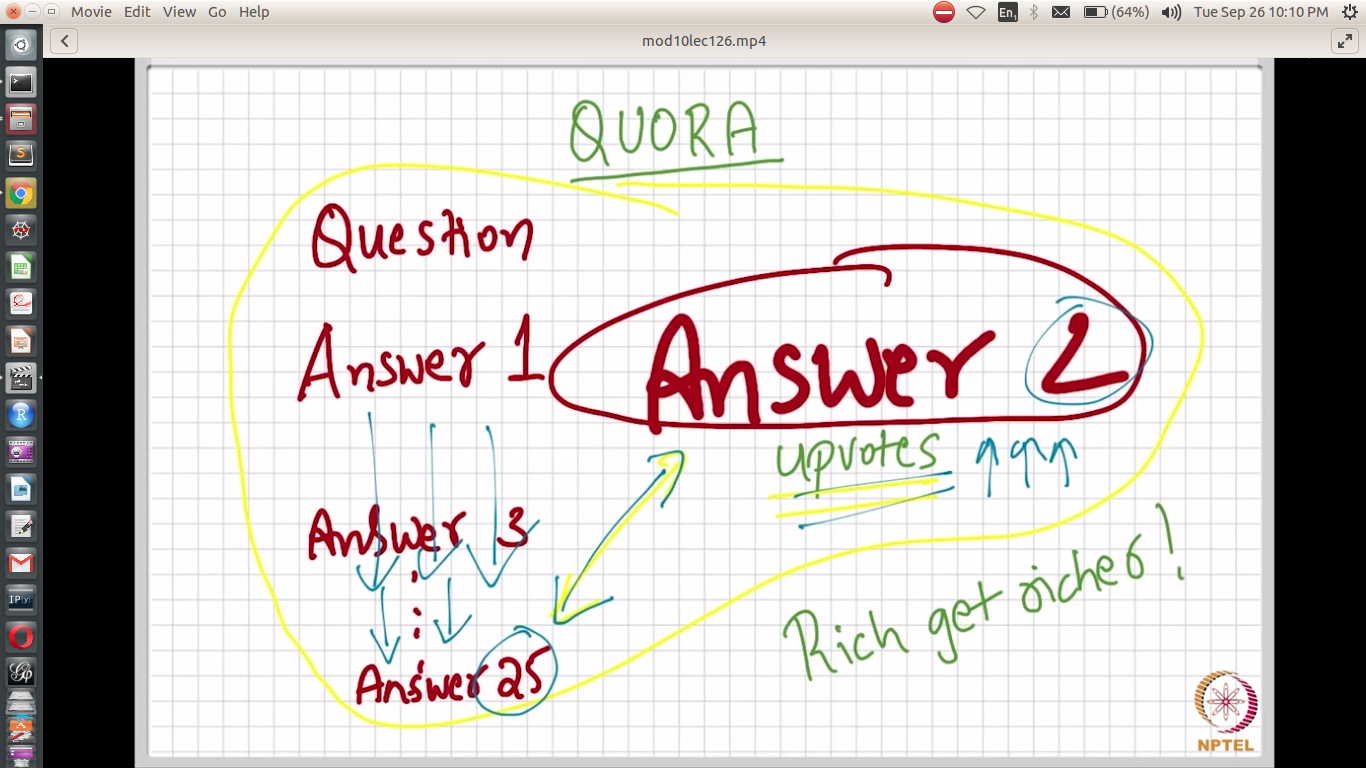 Movie Edit View Go Help
En1 (64%) Tue Sep 26 10:10 PM
mod10lec126.mp4
QUORA
Question
Answer 1 Answer 2
upvotes
Answer 3
Answer 25
Rich get richer!
NPTEL